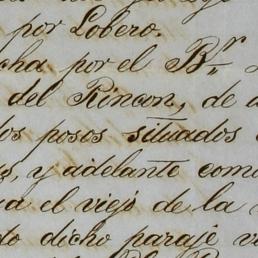 por Lobero.
cha por el Br
del Rincon, de
dos posos situados
y adelante com
a el viejo de la
do dicho paraje v